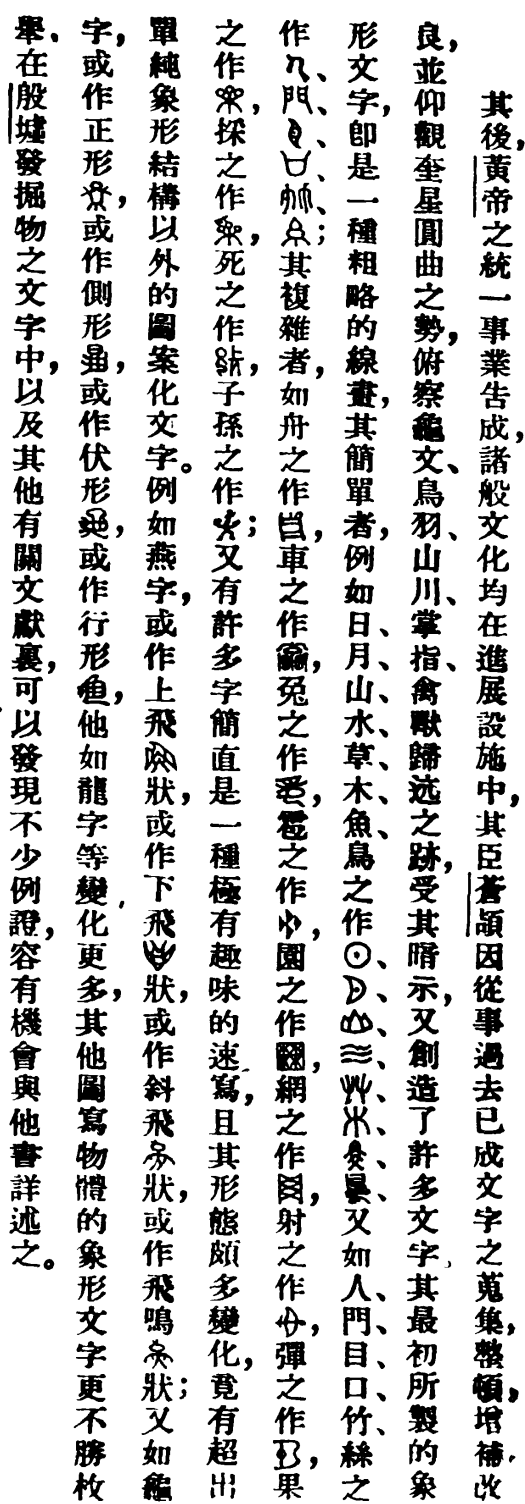 其後，黃帝之統一事業告成，諸般文化均在進展設施中，其臣蒼頡因從事過去已成文字之蒐集，整頓，增補，改
良，並仰觀奎星圓曲之勢，俯察龜文、鳥羽、山川、掌指、禽獸歸迒之跡，受其暗示，又創造了許多文字，其最初所製的象
形文字，卽是一種粗略的線畫，其簡單者，例如日、月、山、水、草、木、魚、鳥之作、又如人、門、目、口、竹、絲之
作；其複雜者，如舟之作，車之作，兔之作，雹之作，園之作，網之作，射之作，彈之作，果
之作，採之作，死之作，子孫之作；又有許多字簡直是一種極有趣味的速寫，且其形態頗多變化，竟有超出
單純象形結構以外的圖案化文字。例如燕字，或作上飛狀，或作下飛狀，或作斜飛狀，或作飛鳴狀；又如龜
字，或作正形，或作側形，或作伏形，或作行形，他如龍字等變化更多，其他圖寫物體的象形文字更不勝枚
舉、在殷墟發掘物之文字中，以及其他有關文獻裏，可以發現不少例證，容有機會與他書詳述之。